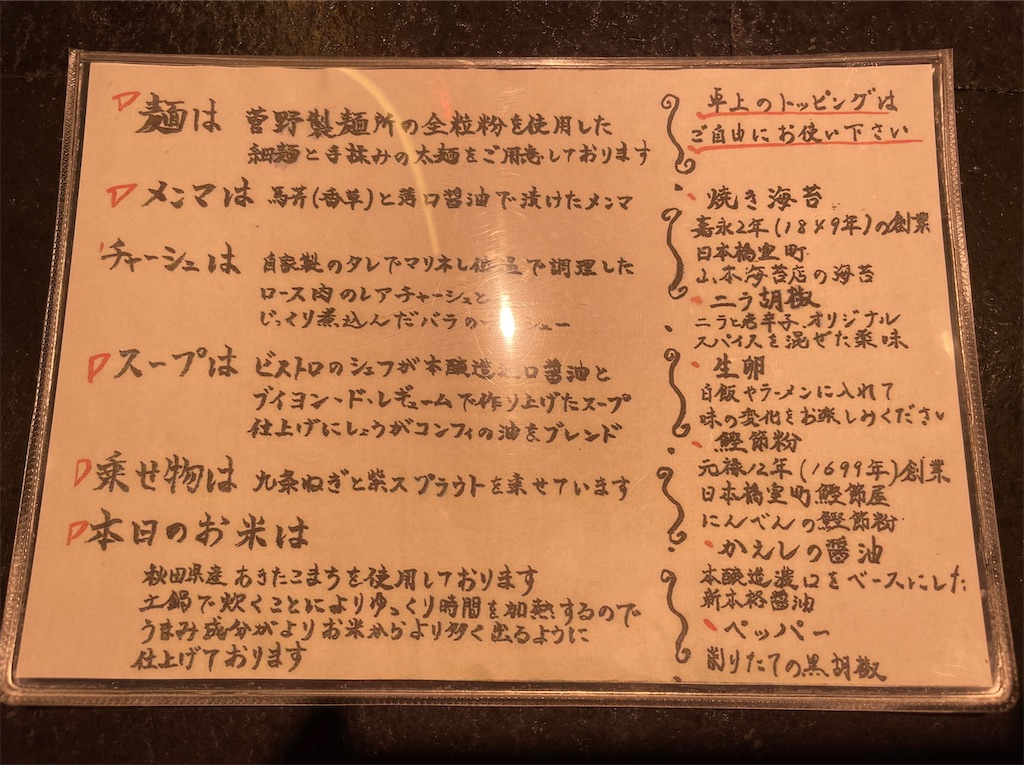 麺は 菅野製麺所の全粒粉を使用した
細麺と手揉みの太麺をご用意しております
メンマは 馬芹(香草)と薄口醤油で漬けたメンマ
チャーシュは 自家製のタレでマリネし低温で調理した
ロース肉のレアチャーシュと
じっくり煮込んだバラの
スープは ビストロのシェフが本醸造 口醤油と
ブイヨン・ド・レギュームで作り上げたスープ
仕上げにしょうがコンフィの油をブレンド
乗せ物は 九条ねぎと紫スプラウトを乗せています
本日のお米は
秋田県産 あきたこまちを使用しております
土鍋で炊くことによりゆっくり時間を加熱するので
うまみ成分がよりお米からより多く出るように
仕上げております
卓上のトッピングは
ご自由にお使い下さい
焼き海苔
嘉永2年(1849年)の創業
日本橋室町
山本海苔店の海苔
ニラ胡椒
ニラと老辛子、オリジナル
スパイスを混ぜた薬味
生卵
白飯やラーメンに入れて
味の変化をお楽しみください
鰹節粉
元禄12年(1699年)創業
日本橋室町鰹節屋
にんべんの鰹節粉
かえしの醤油
本醸造濃口をベースにした
新本格醤油
ペッパー
削りたての黒胡椒